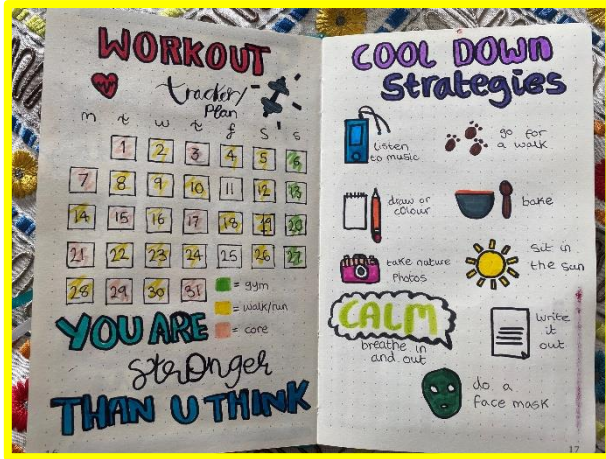 WORKOUT
tracker/
Plan
m t w t f S s
1 2 3 4 5 6
7 8 9 10 11 12 13
14 15 16 17 18 19 20
21 22 23 24 25 26 27
28 29 30 31
= gym
= walk/run
= core
YOU ARE
strOnger
THAN U THINK
COOL DOWN
Strategies
listen
to music
go for
a walk
draw or
colour
bake
take nature
Photos
sit in
the sun
CALM
breathe in
and out
write
it
out
do a
face mask
17